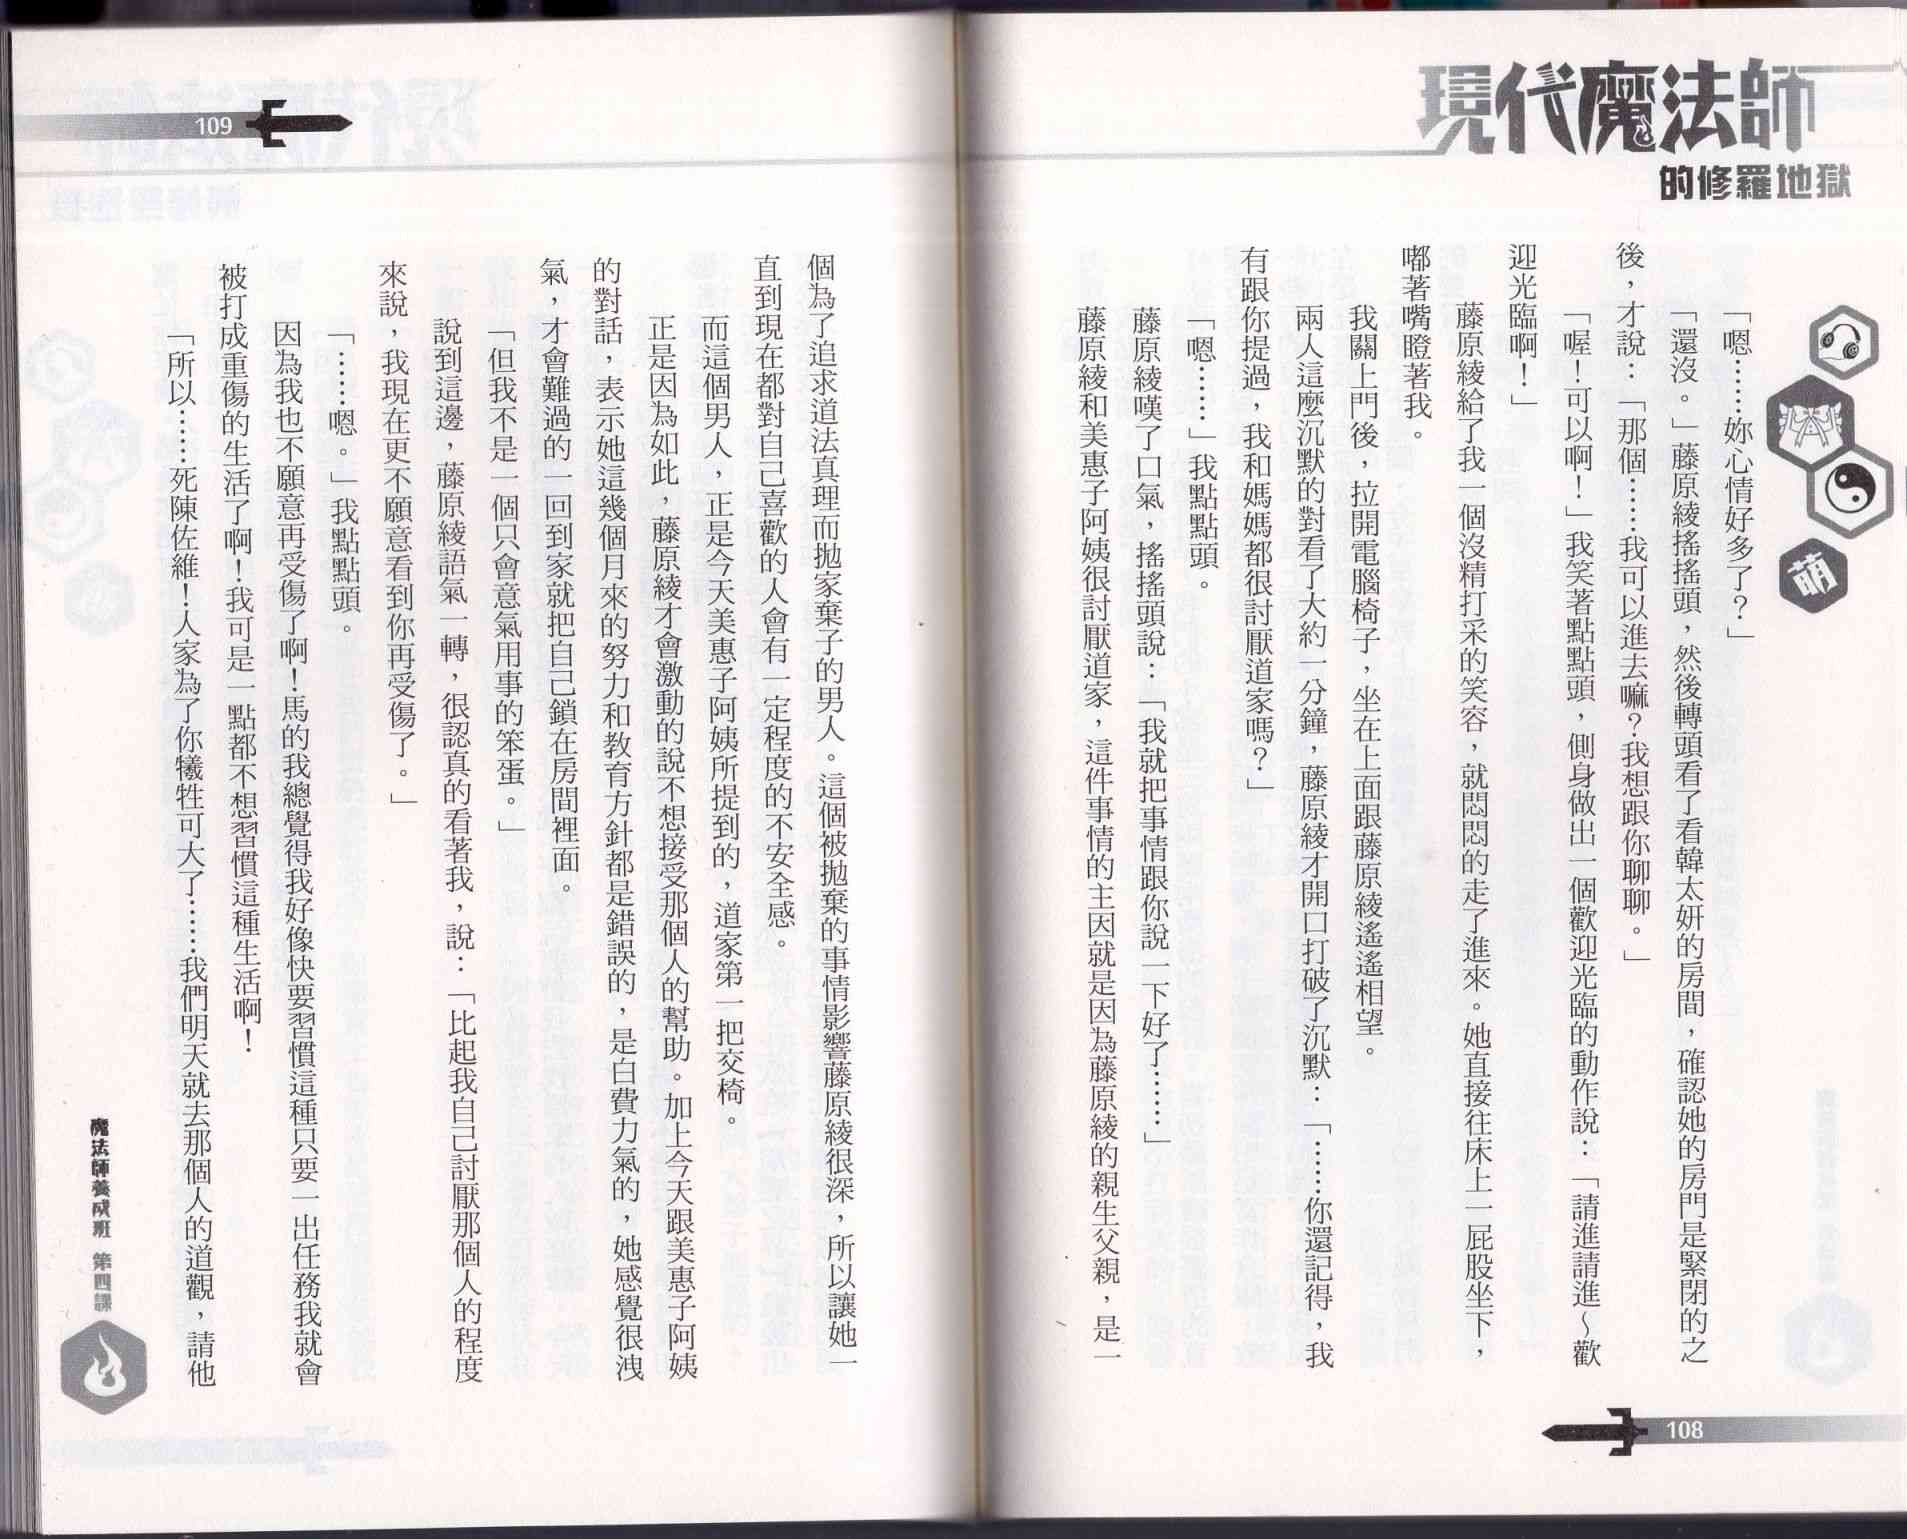 現代魔法師
的修羅地獄
萌
「嗯……妳心情好多了？」
「還沒。」藤原綾搖搖頭，然後轉頭看了看韓太妍的房間，確認她的房門是緊閉的之
後，才說：「那個……我可以進去嘛？我想跟你聊聊。」
「喔！可以啊！」我笑著點點頭，側身做出一個歡迎光臨的動作說：「請進請進～歡
迎光臨啊！」
藤原綾給了我一個沒精打采的笑容，就悶悶的走了進來。她直接往床上一屁股坐下，
嘟著嘴瞪著我。
我關上門後，拉開電腦椅子，坐在上面跟藤原綾遙遙相望。
兩人這麼沉默的對看了大約一分鐘，藤原綾才開口打破了沉默：「……你還記得，我
有跟你提過，我和媽媽都很討厭道家嗎？」
「嗯……」我點點頭。
藤原綾嘆了口氣，搖搖頭說：「我就把事情跟你說一下好了……」
藤原綾和美惠子阿姨很討厭道家，這件事情的主因就是因為藤原綾的親生父親，是一
108
109
個為了追求道法真理而拋家棄子的男人。這個被拋棄的事情影響藤原綾很深，所以讓她一
直到現在都對自己喜歡的人會有一定程度的不安全感。
而這個男人，正是今天美惠子阿姨所提到的，道家第一把交椅。
正是因為如此，藤原綾才會激動的說不想接受那個人的幫助。加上今天跟美惠子阿姨
的對話，表示她這幾個月來的努力和教育方針都是錯誤的，是白費力氣的，她感覺很洩
氣，才會難過的一回到家就把自己鎖在房間裡面。
「但我不是一個只會意氣用事的笨蛋。」
說到這邊，藤原綾語氣一轉，很認真的看著我，說：「比起我自己討厭那個人的程度
來說，我現在更不願意看到你再受傷了。」
「……嗯。」我點點頭。
因為我也不願意再受傷了啊！馬的我總覺得我好像快要習慣這種只要一出任務我就會
被打成重傷的生活了啊！我可是一點都不想習慣這種生活啊！
「所以……死陳佐維！人家為了你犧牲可大了……我們明天就去那個人的道觀，請他
魔法師養成班 第四課